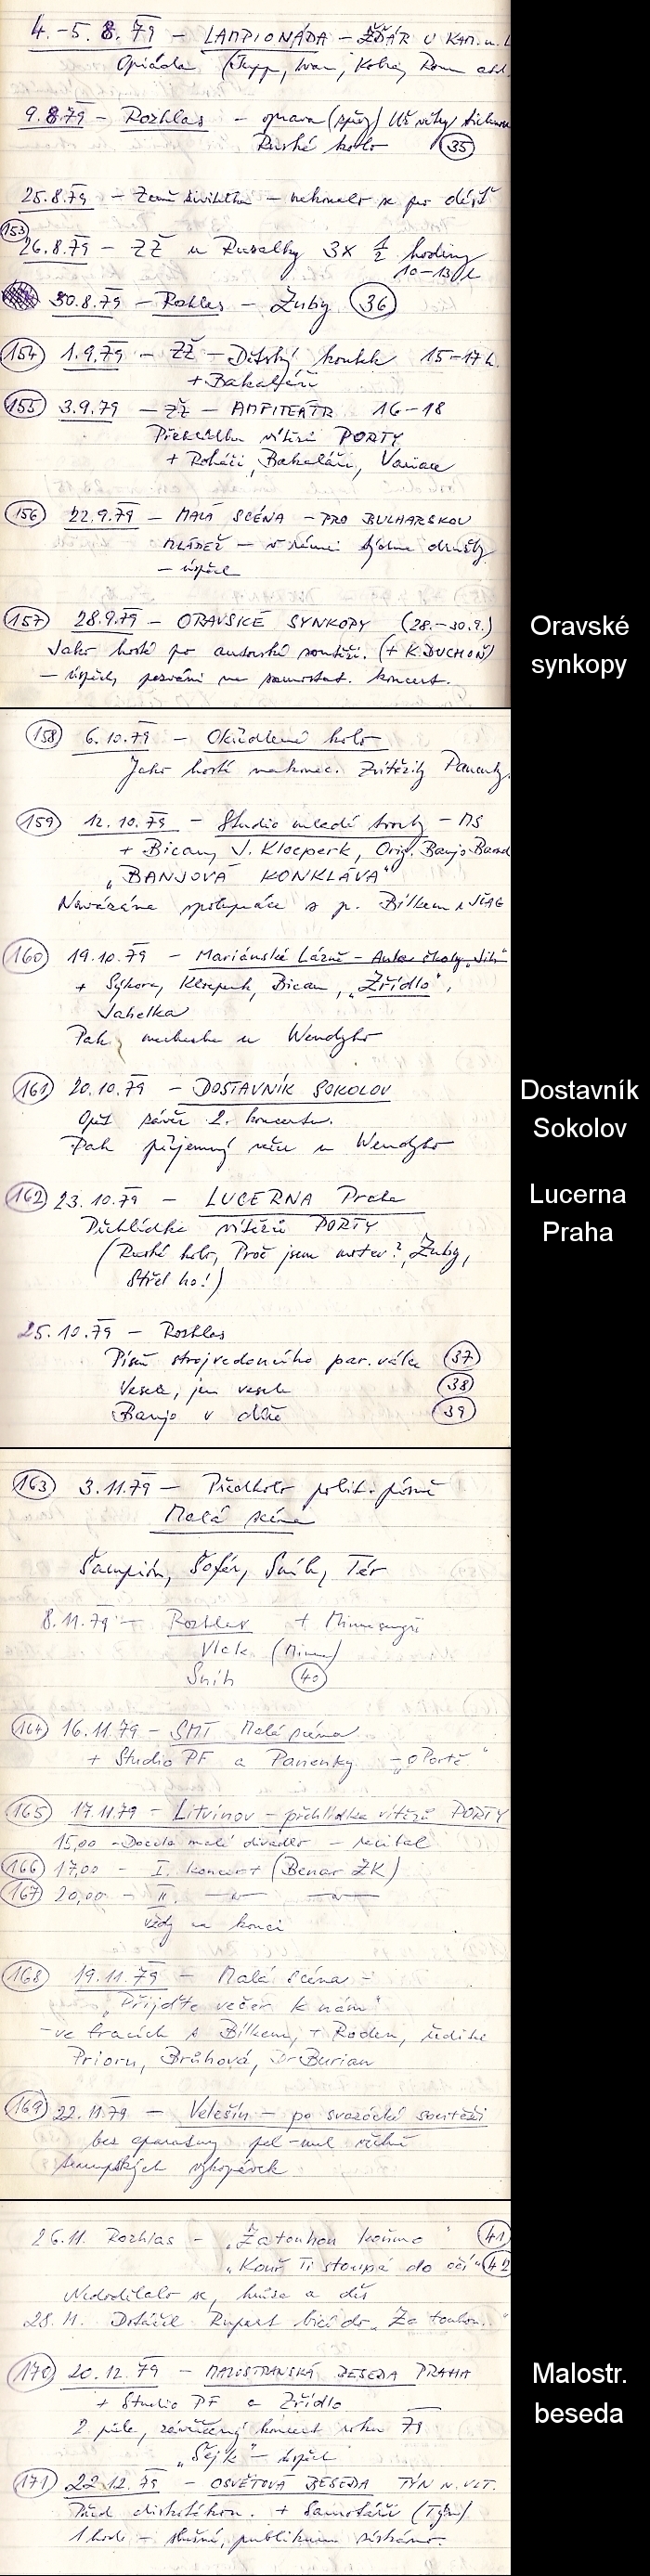 4.-5. 8. 79 - LAMPIONÁDA - ŽĎÁR U KAM. n. L
Opiáda (Ivan, Rom atd.
9.8.79 - Rozhlas - oprava (zpěv)
Ruské kolo 35
25.8.79 - Země živitelka - nekonalo se pro déšť
153
26.8.79 - ZŽ u Rusalky 3x 1/2 hodiny
10-13h
30.8.79 - Rozhlas - Zuby 36
154 1.9.79 - ZŽ - Dětský koutek 15-17h.
+ Bakaláři
155 3.9.79 - ZŽ - AMFITEÁTR 16-18
Přehlídka vítězů PORTY
+ Roháči, Bakaláři, Variace
156 22.9.79 - MALÁ SCÉNA - PRO BULHARSKOU
MLÁDEŽ - v rámci týdne družby
- úspěch
157 28.9.79 - ORAVSKÉ SYNKOPY (28.-30.9.)
Jako hosté po autorské soutěži. (+ K. DUCHOŇ)
- úspěch, pozvání na samostat. koncert.
Oravské
synkopy
158 6.10.79 - Okřídlené kolo
Jako hosté nakonec. Zvítězily Panenky.
159 12.10.79 - Studio mladé tvorby - MS
+ Bican, J. Kloeperk, Orig. Banjo Band
"BANJOVÁ KONKLÁVA"
Navázána spolupráce s p. Bílkem
160 19.10.79 - Mariánské Lázně -
+ Sýkora, Bican, "Žřídlo",
Jahelka
Pak u Wendyho
161 20.10.79 - DOSTAVNÍK SOKOLOV
Opět závěr 2. koncertu.
Pak příjemný večer u Wendyho
Dostavník
Sokolov
162 23.10.79 - LUCERNA Praha
Přehlídka vítězů PORTY
(Ruské kolo, Proč jsem mrtev?, Zuby,
Střel ho!)
Lucerna
Praha
25.10.79 - Rozhlas
Píseň strojvedoucího par. válce 37
Vesele, jen vesele 38
Banjo v dálce 39
163 3.11.79 - Předkolo polit. písně
Malá scéna
Šampión, Šofér, Sníh, Tér
8.11.79 - Rozhlas + Minnesengři
Vlak (Minn)
Sníh 40
164 16.11.79 - SMT Malá scéna
+ Studio PF a Panenky - "O Portě"
165 17.11.79 - Litvínov - přehlídka vítězů PORTY
15,00 - Docela malé divadlo - recitál
166 17,00 - I. koncert (Benar ZK)
167 20,00 - II. -"- -"-
vždy na konci
168 19.11.79 - Malá scéna -
"Přijďte večer k nám"
- ve fracích s Bílkem, + Roden,
Prioru, Brůhová, Dr Burian
169 22.11.79 - Velešín - po svazácké soutěži
bez aparatury
trempských vykopávek
26.11. Rozhlas - "Za touhou koňmo" 41
"Kouř Ti stoupá do očí" 42
Nedodělalo se, hrůza a děs
28.11. Dotáčel Rupert bicí do "Za touhou.."
170 20.12.79 - MALOSTRANSKÁ BESEDA PRAHA
+ Studio PF a Zřídlo
2. půle, závěrečný koncert roku 79
"Šejk" - úspěch
Malostr.
beseda
171 22.12.79 - OSVĚTOVÁ BESEDA TÝN n. VLT.
Před diskotékou. + Samotáři (Týn)
1 hod. - slušné, publikum